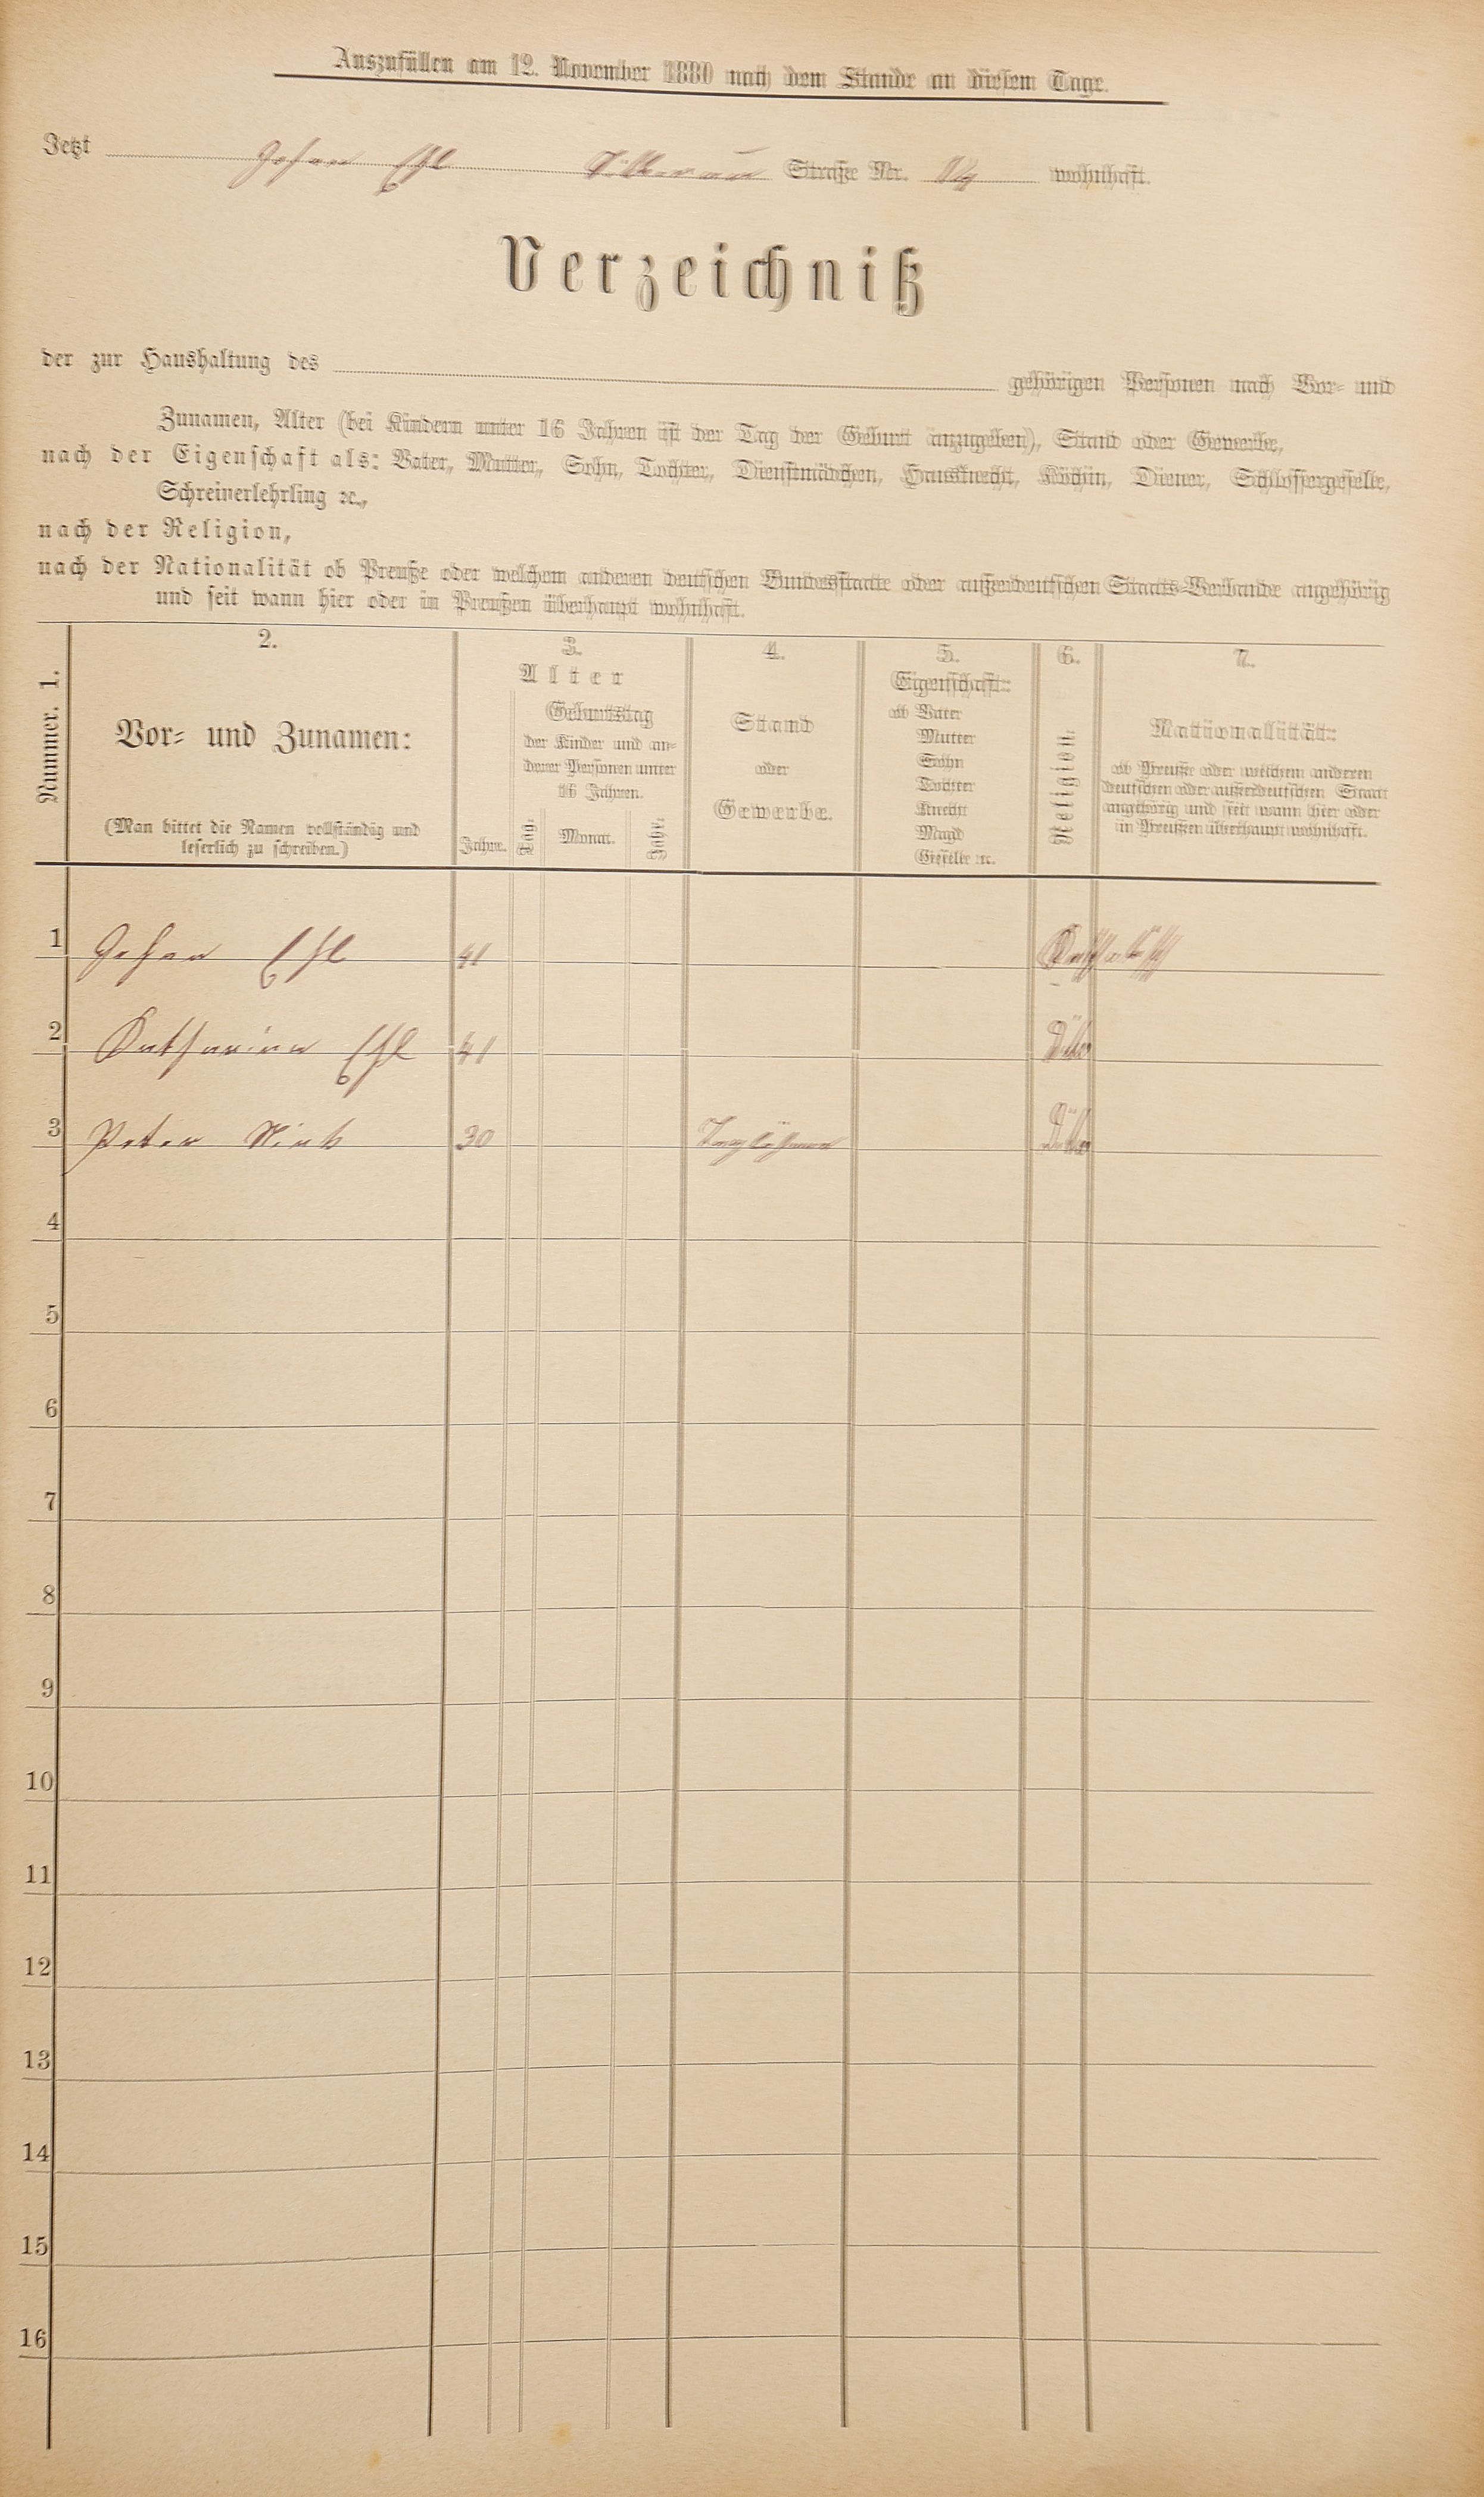 Auszufüllen am 12. November 1880 nach dem Stande an diesem Tage.
Jetzt Johan Ehl Straße Nr. wohnhaft.
Verzeichniß
der zur Haushaltung des gehörigen Personen nach Vor- und
Zunamen, Alter (bei Kindern unter 16 Jahren ist der Tag der Geburt anzugeben), Stand oder Gewerbe,
nach der Eigenschaft als: Vater, Mutter, Sohn, Tochter, Dienstmädchen, Hausknecht, Köchin, Diener, Schlossergeselle,
Schreinerlehrling ꝛc.,
nach der Religion,
nach der Nationalität ob Preuße oder welchem anderen deutschen Bundesstaate oder außerdeutschen Staats-Verbande angehörig
und seit wann hier oder in Preußen überhaupt wohnhaft.
Nummer. 1.
2.
Vor- und Zunamen:
(Man bittet die Namen vollständig und
leserlich zu schreiben.)
3.
Alter
Jahre.
Geburtstag
der Kinder und an-
derer Personen unter
16 Jahren.
Tag. Monat. Jahr.
4.
Stand
oder
Gewerbe.
5.
Eigenschaft:
ob Vater
Mutter
Sohn
Tochter
Knecht
Magd
Geselle ꝛc.
6.
Religion.
7.
Nationalität:
ob Preuße oder welchem anderen
deutschen oder außerdeutschen Staat
angehörig und seit wann hier oder
in Preußen überhaupt wohnhaft.
1 Johan Ehl 41 Katholisch
2 Katharina Ehl 41 Ditto
3 Peter 30 Taglöhner Ditto
4
5
6
7
8
9
10
11
12
13
14
15
16